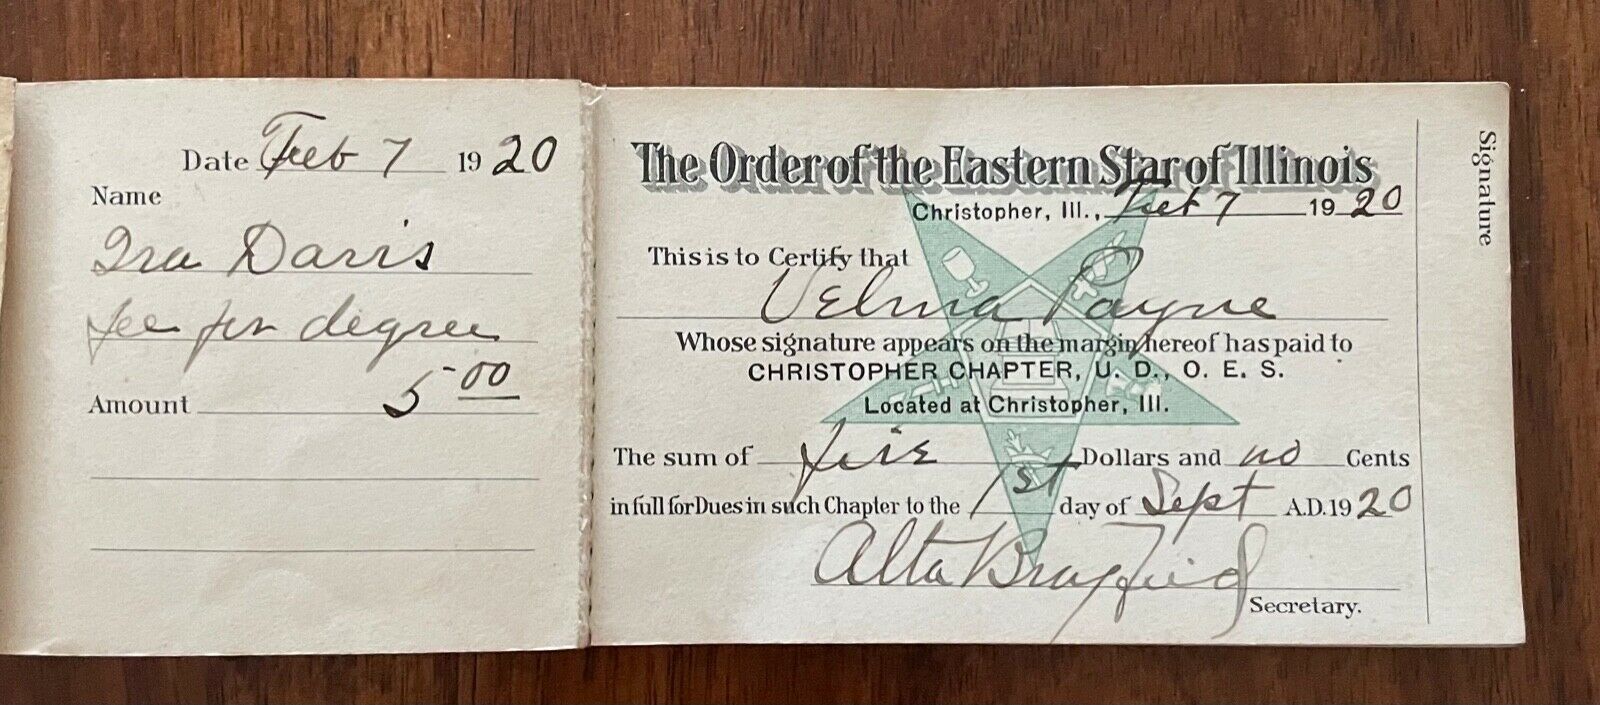 Date Feb 7 1920
Name
Ira Davis
fee for degree
Amount 5 00
The Order of the Eastern Star of Illinois
Christopher, Ill., Feb 7 1920
This is to Certify that
Velma Payne
Whose signature appears on the margin hereof has paid to
CHRISTOPHER CHAPTER, U. D., O. E. S.
Located at Christopher, Ill.
The sum of five Dollars and no Cents
in full for Dues in such Chapter to the 1st day of Sept A.D. 1920
Alta
Secretary.
Signature